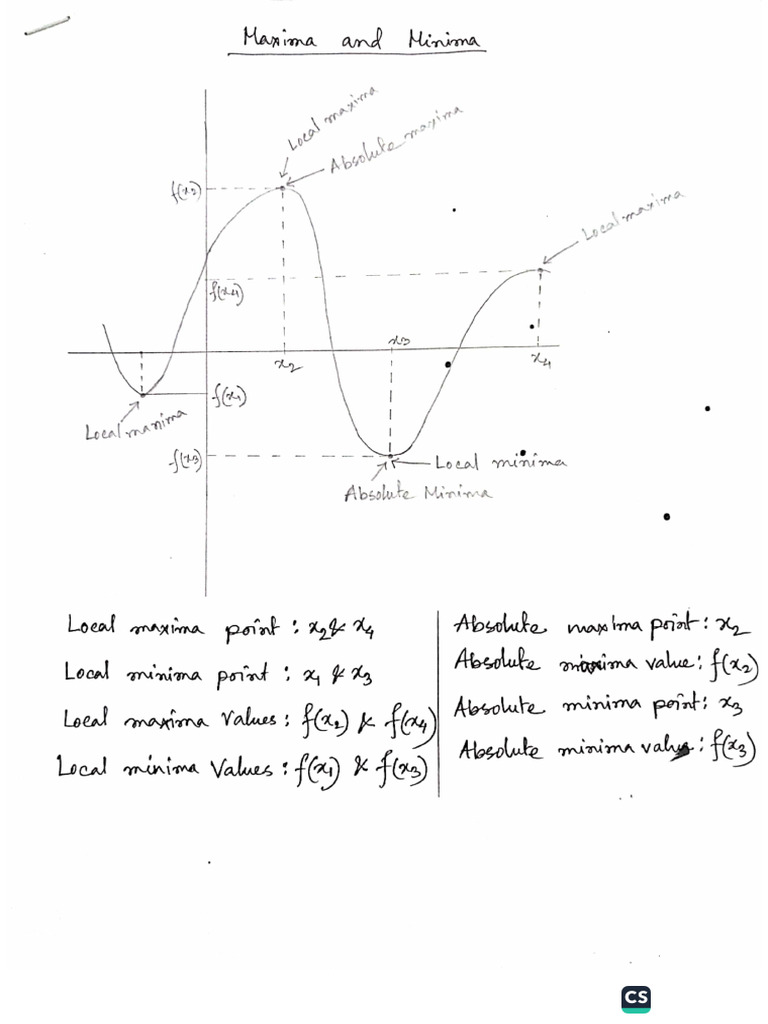 Maxima and Minima
Local maxima
Absolute maxima
f(x2)
Local maxima
f(x4)
x3
x2
x4
f(x1)
Local maxima
f(x3)
Local minima
Absolute Minima
Local maxima point : x2 & x4
Local minima point : x1 & x3
Local maxima values : f(x2) & f(x4)
Local minima Values : f(x1) & f(x3)
Absolute maxima point : x2
Absolute maxima value : f(x2)
Absolute minima point : x3
Absolute minima value : f(x3)
CS